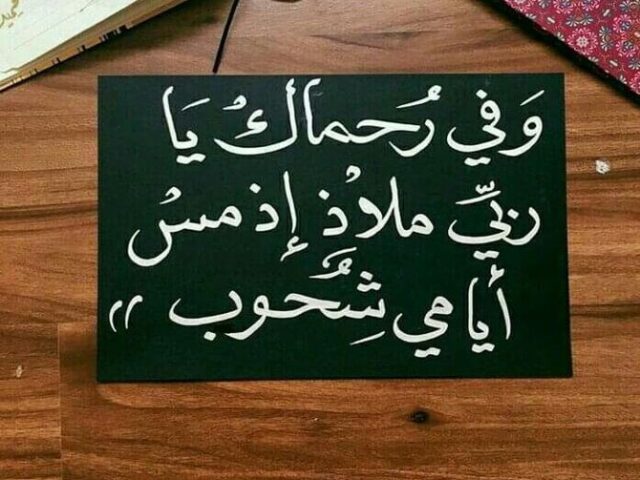 وَفي رُحماكُ يَا
ربّي ملاذ إذ مسُ
أيامي شُحوب "